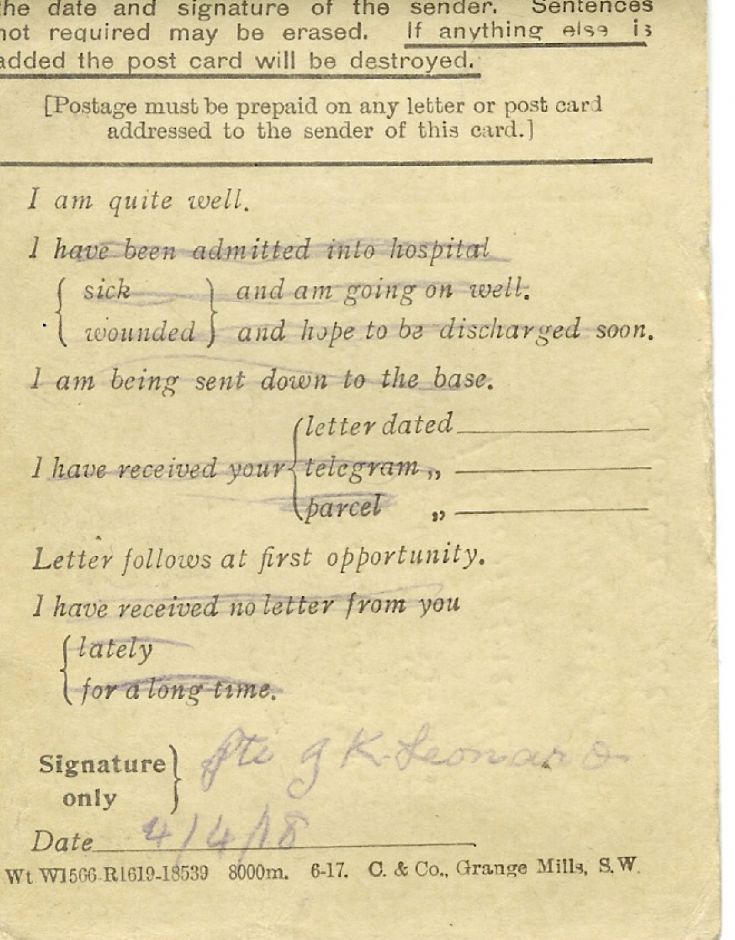 the date and signature of the sender. Sentences
not required may be erased. If anything else is
added the post card will be destroyed.
[Postage must be prepaid on any letter or post card
addressed to the sender of this card.]
I am quite well.
I have been admitted into hospital
{ sick } and am going on well.
{ wounded } and hope to be discharged soon.
I am being sent down to the base.
{ letter dated
I have received your { telegram „
{ parcel „
Letter follows at first opportunity.
I have received no letter from you
{ lately
{ for a long time.
Signature } Pte G K Leonard
only
Date 4/4/18
Wt W1566 R1619-18539 8000m. 6-17. C. & Co., Grange Mills, S.W.